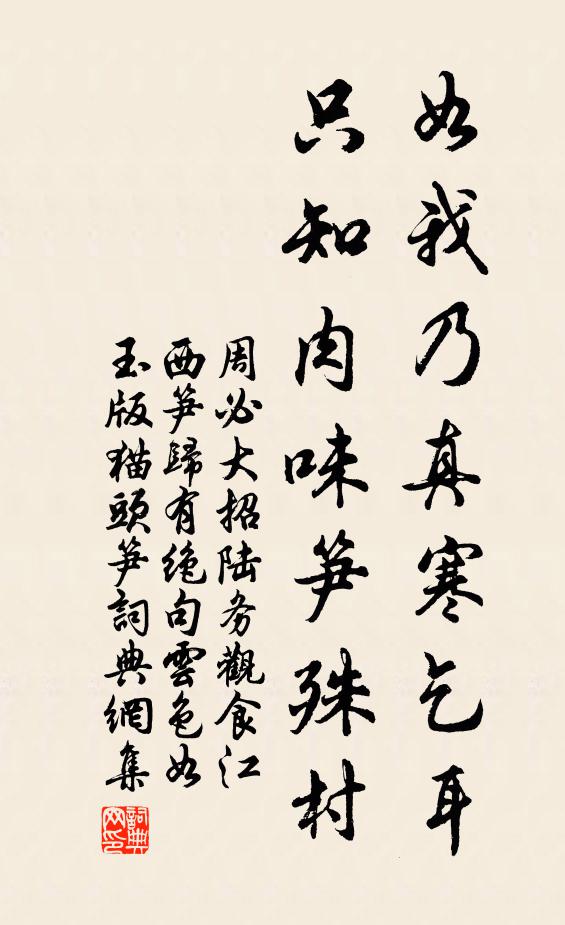 如我乃真寒乞耳
只知肉味笋殊村
周必大招陆务觀食江
西笋歸有绝句雲色如
玉版猫頭笋詞典網集
詞典網印